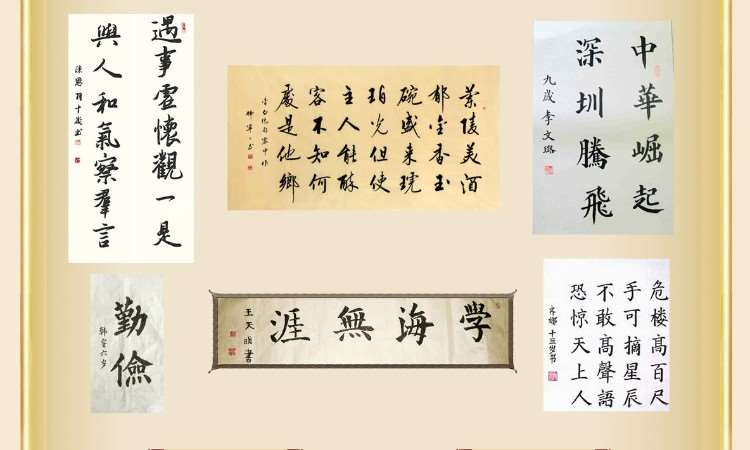 遇事虛懷觀一是
與人和氣察羣言
蘭陵美酒
郁金香玉
碗盛来琥
珀光但使
主人能醉
客不知何
處是他鄉
中華崛起
深圳騰飛
九歲 李文璐
勤儉
六岁
學海無涯
危楼高百尺
手可摘星辰
不敢高聲語
恐惊天上人
十三岁书